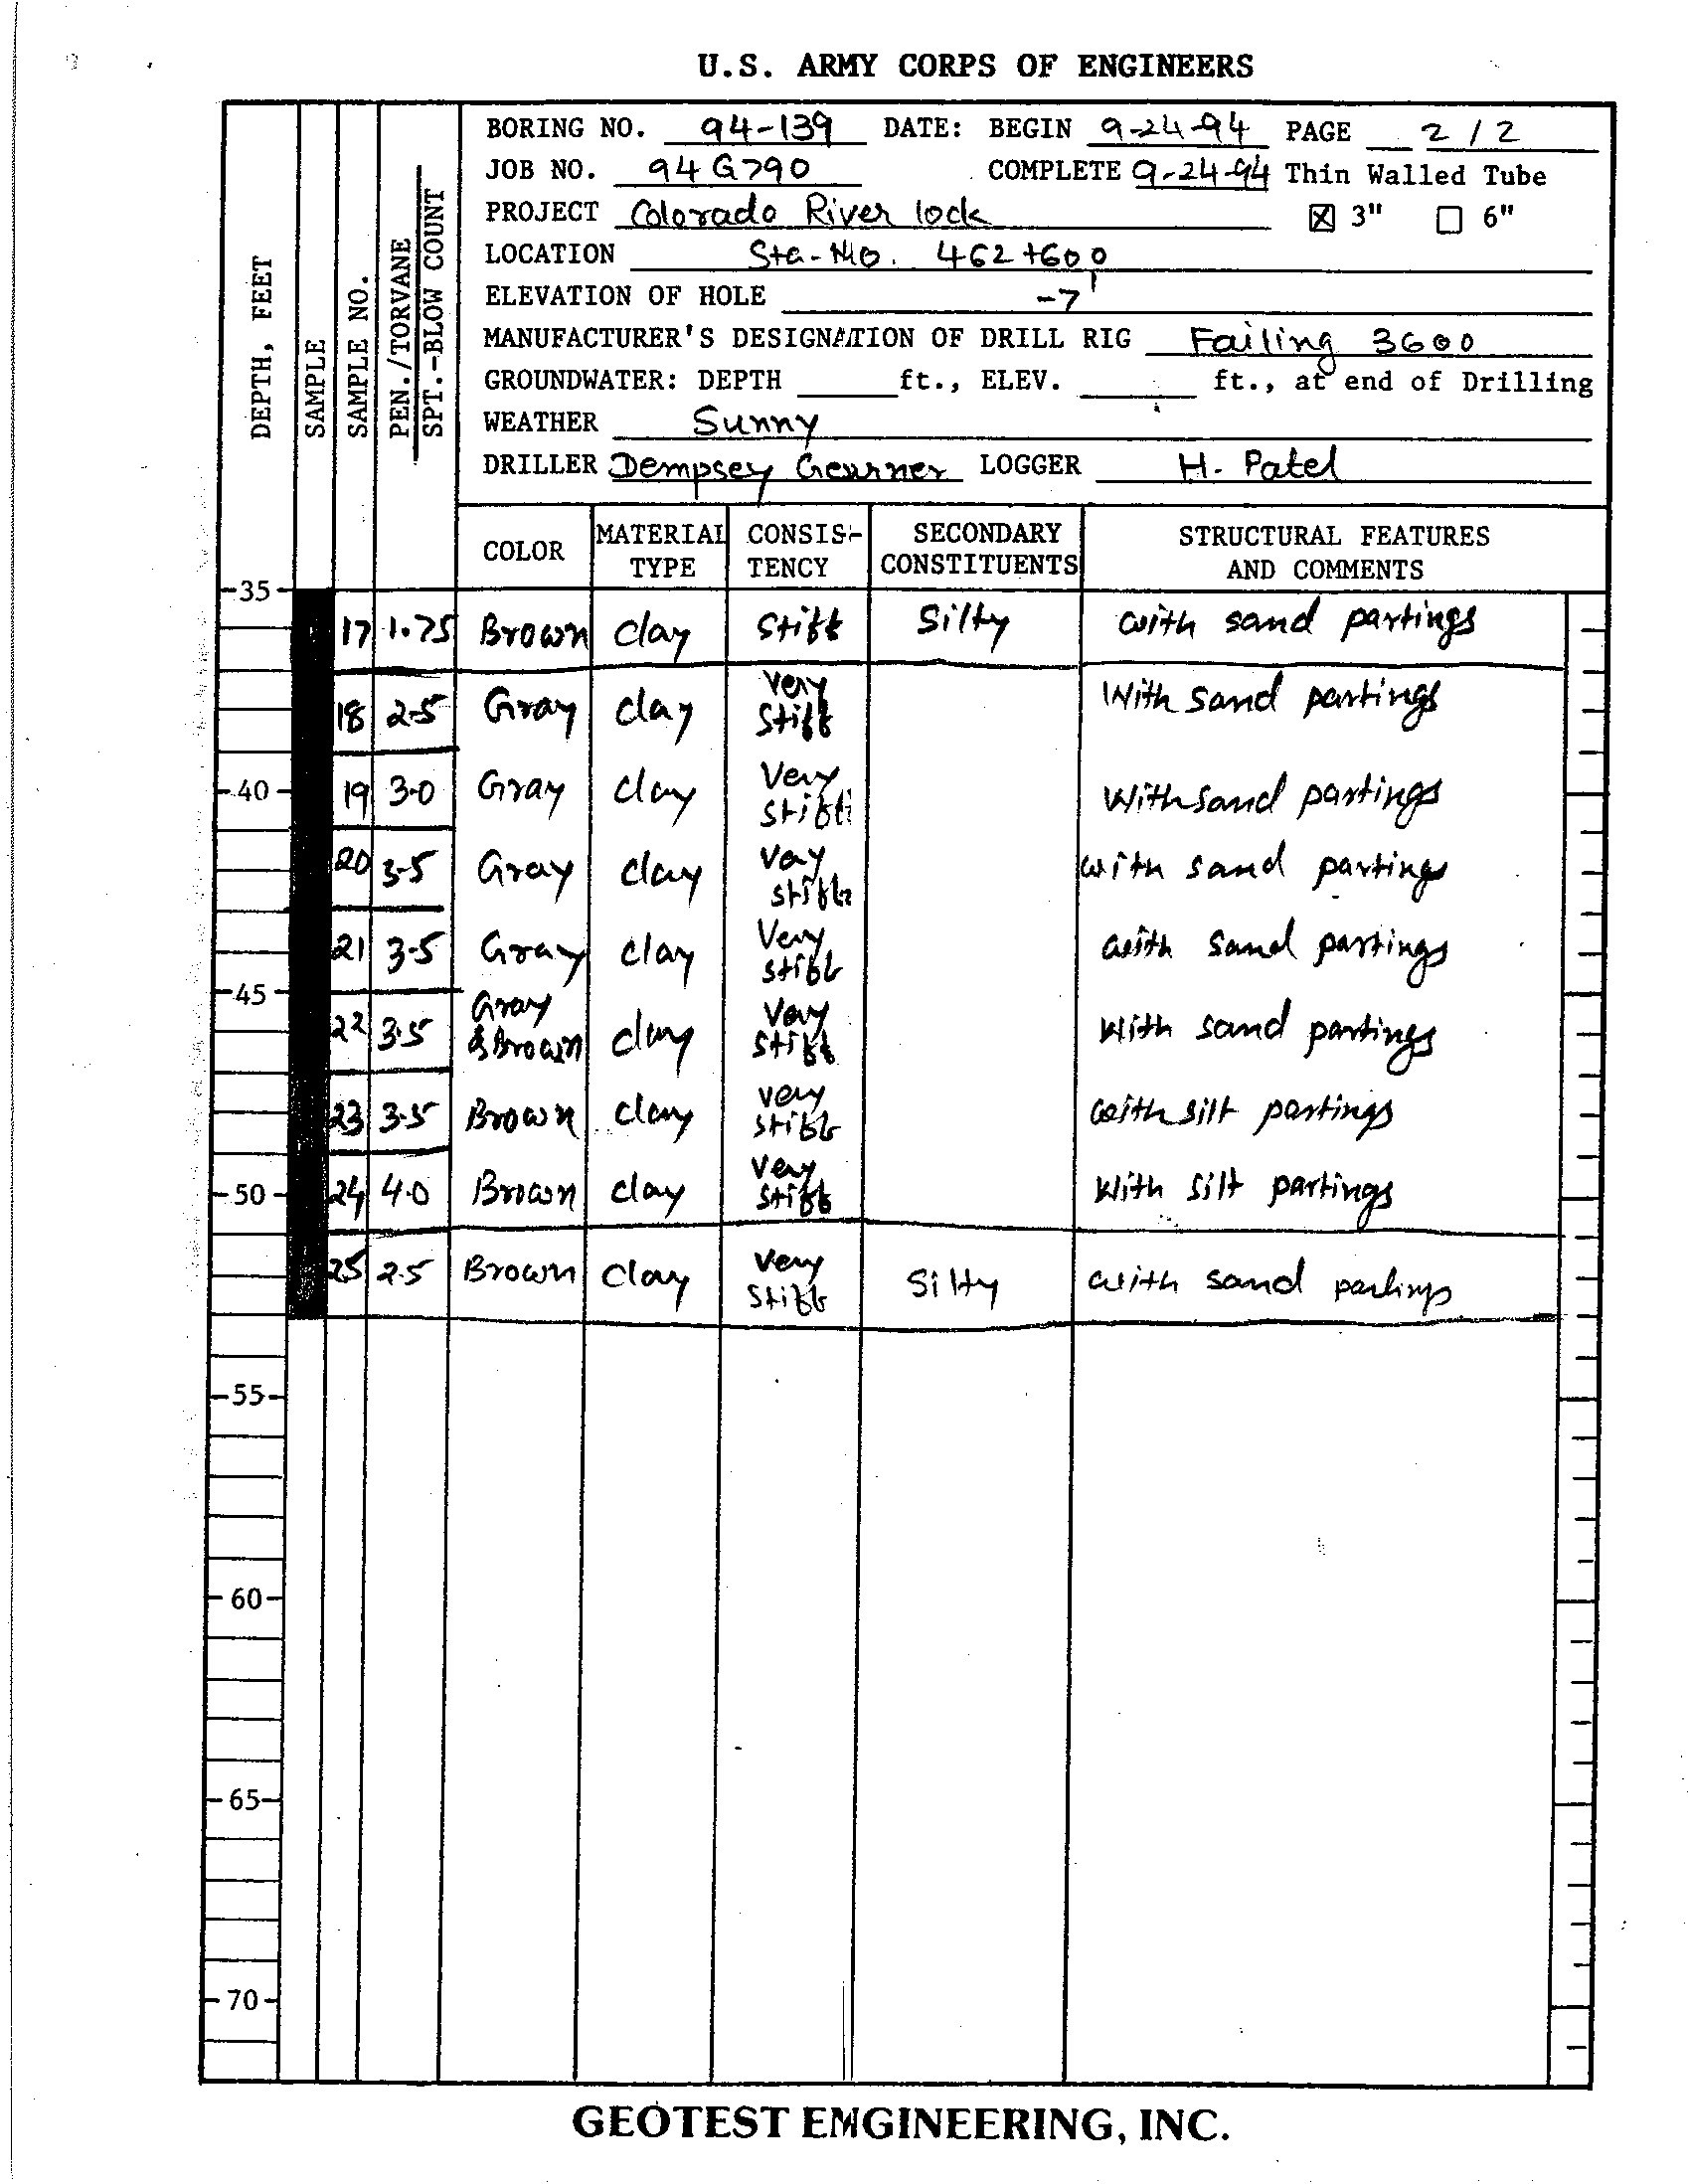 U.S. ARMY CORPS OF ENGINEERS
BORING NO. 94-139 DATE: BEGIN 9-24-94 PAGE 2 / 2
JOB NO. 94G790 COMPLETE 9-24-94 Thin Walled Tube
PROJECT Colorado River lock ☒ 3" ☐ 6"
LOCATION Sta-No. 462+600
ELEVATION OF HOLE -7'
MANUFACTURER'S DESIGNATION OF DRILL RIG Failing 3600
GROUNDWATER: DEPTH ft., ELEV. ft., at end of Drilling
WEATHER Sunny
DRILLER Dempsey LOGGER H. Patel
DEPTH, FEET
SAMPLE
SAMPLE NO.
PEN./TORVANE
SPT.-BLOW COUNT
COLOR MATERIAL TYPE CONSIS-TENCY SECONDARY CONSTITUENTS STRUCTURAL FEATURES AND COMMENTS
35
17 1.75 Brown clay Stiff Silty with sand partings
18 2.5 Gray clay Very Stiff With sand partings
40 19 3.0 Gray clay Very stiff With sand partings
20 3.5 Gray clay Very stiff with sand partings
21 3.5 Gray clay Very stiff with sand partings
45
22 3.5 Gray & Brown clay Very stiff With sand partings
23 3.5 Brown clay very stiff with silt partings
50 24 4.0 Brown clay Very stiff With silt partings
25 2.5 Brown clay Very stiff Silty with sand partings
55
60
65
70
GEOTEST ENGINEERING, INC.